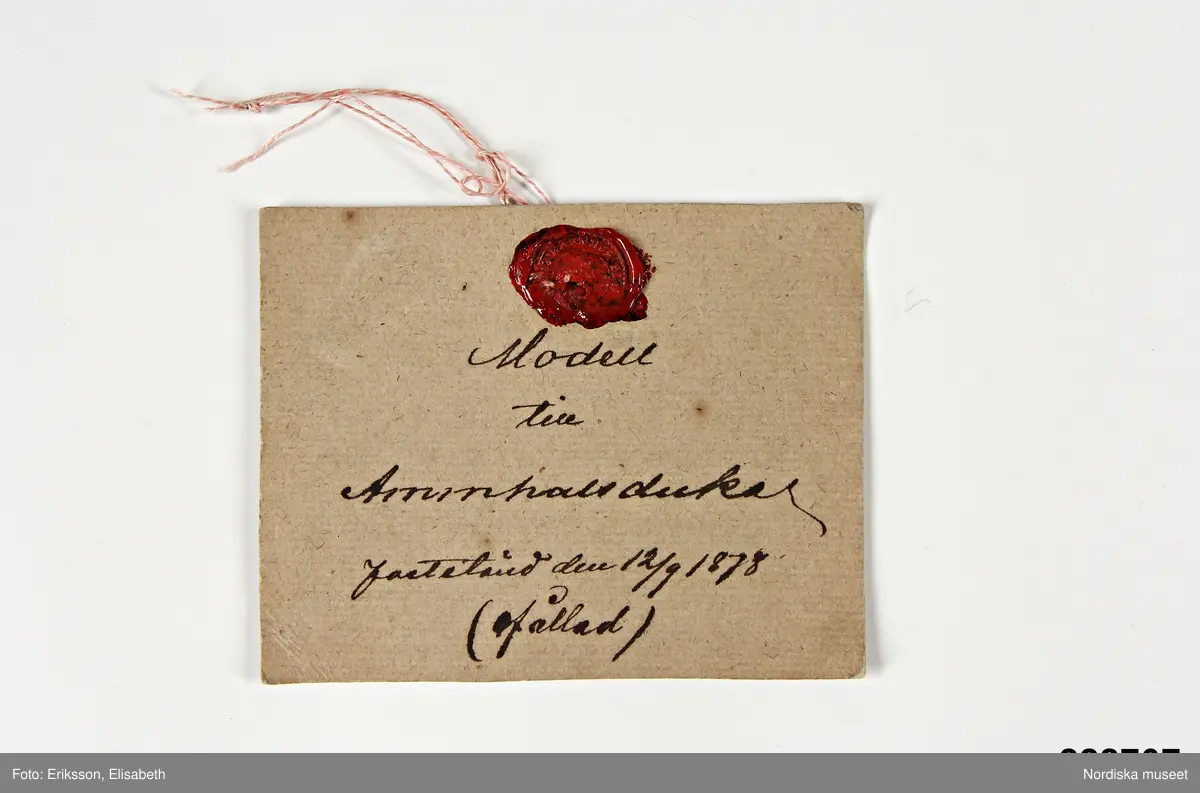 Modell
till
Ammhalsdukar
fastställd den 12/9 1878
(ofållad)
Foto: Eriksson, Elisabeth
Nordiska museet